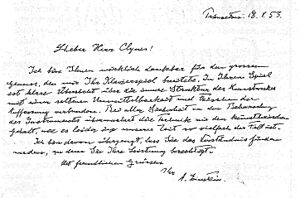 Princeton. 18. V. 53.
Lieber Herr Clynes!
Ich bin Ihnen wirklich dankbar für den grossen
Genuss, den mir Ihr Klavierspiel bereitete. In Ihrem Spiel
ist klare Übersicht über die innere Struktur des Kunstwerkes
mit einer seltenen Unmittelbarkeit und der
Auffassung verbunden. Bei aller Sicherheit in der Behandlung
des Instrumentes überwuchert die Technik nie den künstlerischen
Gehalt, wie es leider in unserer Zeit so vielfach der Fall ist.
Ich bin davon überzeugt, dass Sie das Verständnis finden
werden, zu dem Sie Ihre Leistung berechtigt.
Mit freundlichen Grüssen
Ihr
A. Einstein.